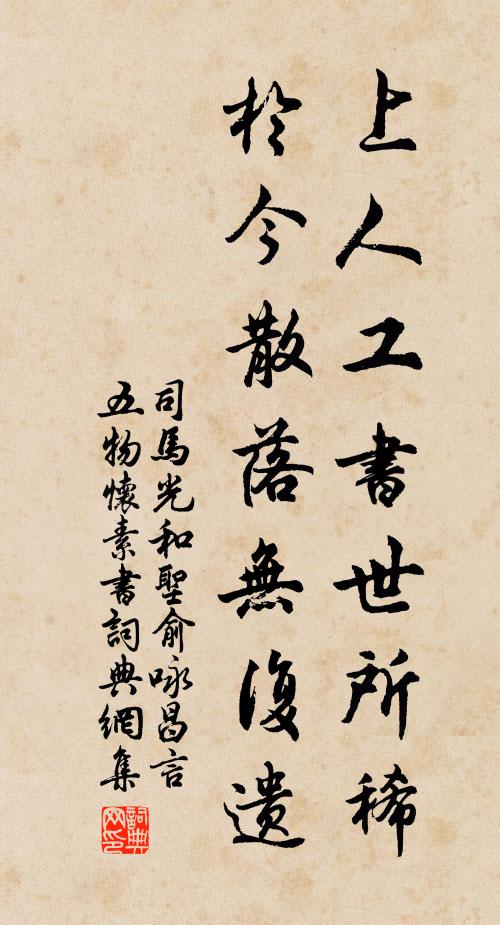 上人工書世所稀
於今散落無復遺
司馬光和聖俞咏昌言
五物懷素書詞典網集
詞典网印